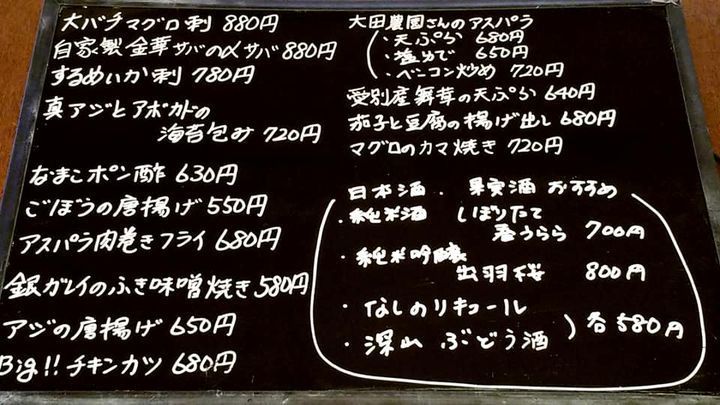 大バチマグロ刺 880円
自家製 金華サバの〆サバ 880円
するめいか刺 780円
真アジとアボカドの
海苔包み 720円
なまこポン酢 630円
ごぼうの唐揚げ 550円
アスパラ肉巻きフライ 680円
銀ガレイのふき味噌焼き 580円
アジの唐揚げ 650円
Big!! チキンカツ 680円
大田農園さんのアスパラ
・天ぷら 680円
・塩ゆで 650円
・ベーコン炒め 720円
愛別産舞茸の天ぷら 640円
茄子と豆腐の揚げ出し 680円
マグロのカマ焼き 720円
日本酒・果実酒 おすすめ
・純米酒 しぼりたて
春うらら 700円
・純米吟醸
出羽桜 800円
・なしのリキュール
・深山 ぶどう酒 ) 各580円